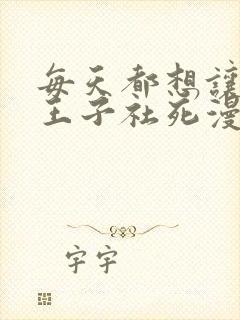 每天都想讓
王子社死漫
字宇